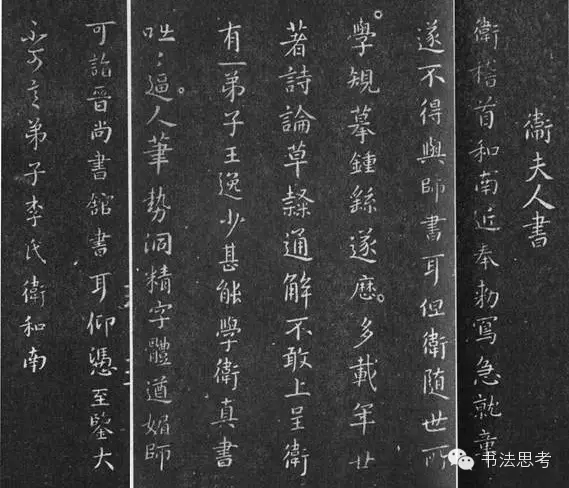 衛夫人書
衛稽首和南近奉勅寫急就章
遂不得與師書耳但衛隨世所
學規摹鍾繇遂歷多載年廿
著詩論草隸通解不敢上呈衛
有一弟子王逸少甚能學衛真書
咄〻逼人筆勢洞精字體遒媚師
可詣晉尚書舘書耳仰憑至鑒大
不可言弟子李氏衛和南
书法思考